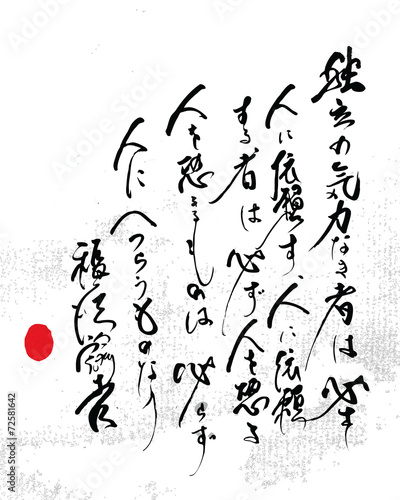 独立の気力なき者は必ず
人に依頼す、人に依頼
する者は必ず人を恐る
人を恐るるものは必らず
人にへつらうものなり
福沢諭吉
Adobe Stock | #72581642